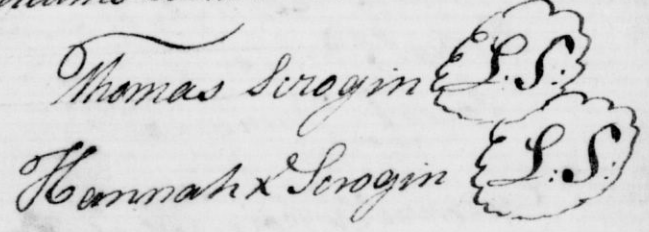 Thomas Scrogin L:S:
Hannah x Scrogin L:S: